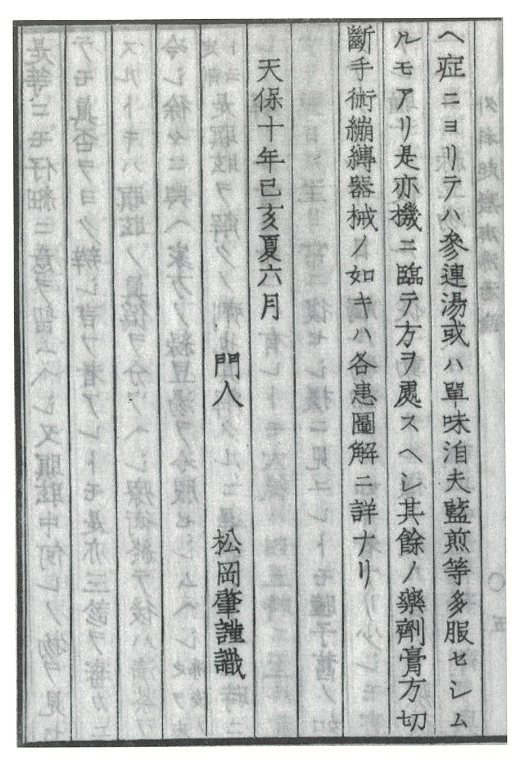 ヘ症ニヨリテハ參連湯或ハ單味洎夫藍煎等多服セシム
ルモアリ是亦機ニ臨テ方ヲ處スヘシ其餘ノ藥劑膏方切
斷手術繃縛器械ノ如キハ各患圖解ニ詳ナリ
天保十年己亥夏六月
門人 松岡肇謹識